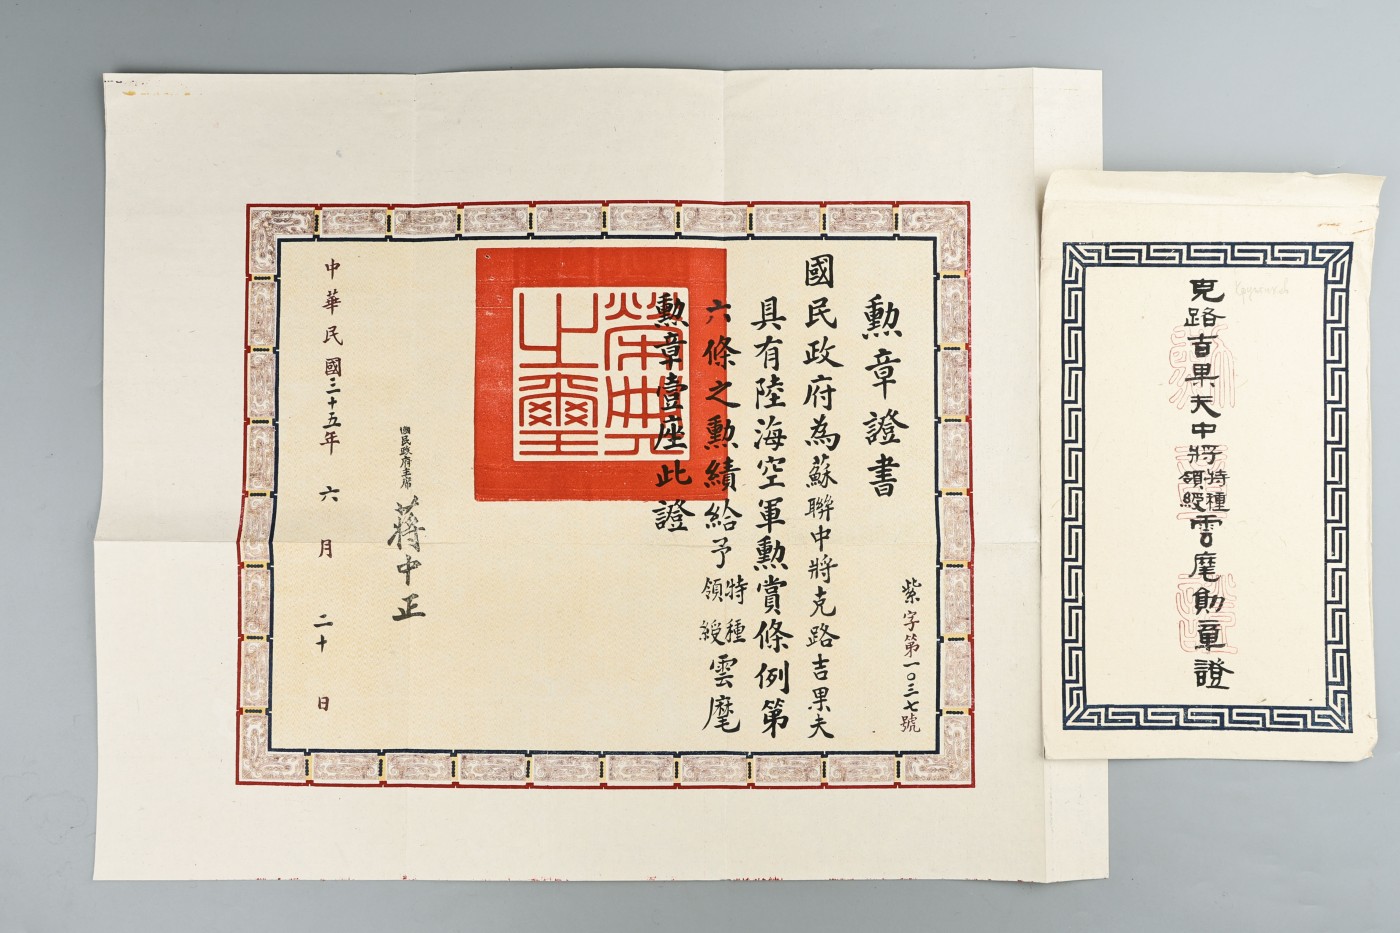 勲章證書
國民政府為蘇聯中將克路吉果夫
具有陸海空軍勲賞條例第
六條之勲績給予特種領綬雲麾
勲章壹座此證
榮典之璽
紫字第一〇三七號
國民政府主席
蔣中正
中華民國三十五年六月二十日
克路吉果夫中將特種領綬雲麾勛章證